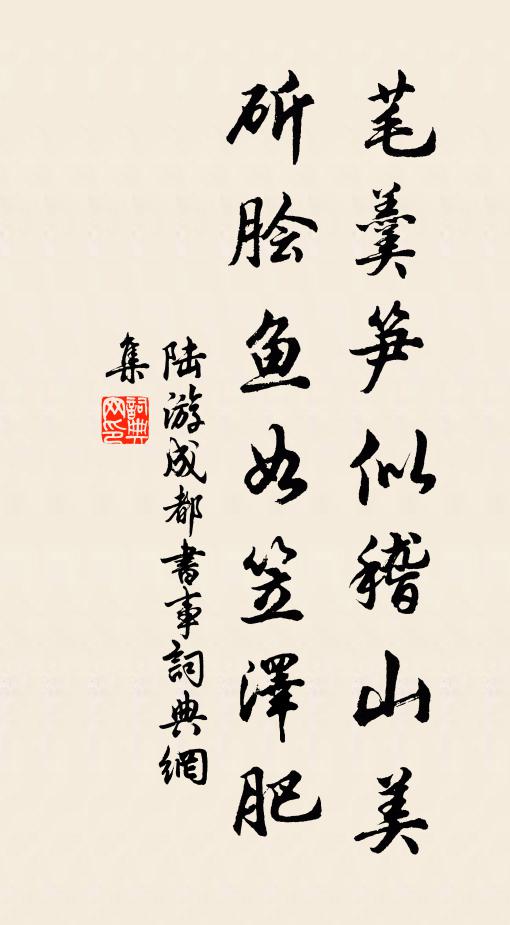 芼羹笋似稽山美
斫脍鱼如笠澤肥
陆游成都書事詞典網
集
詞典网印